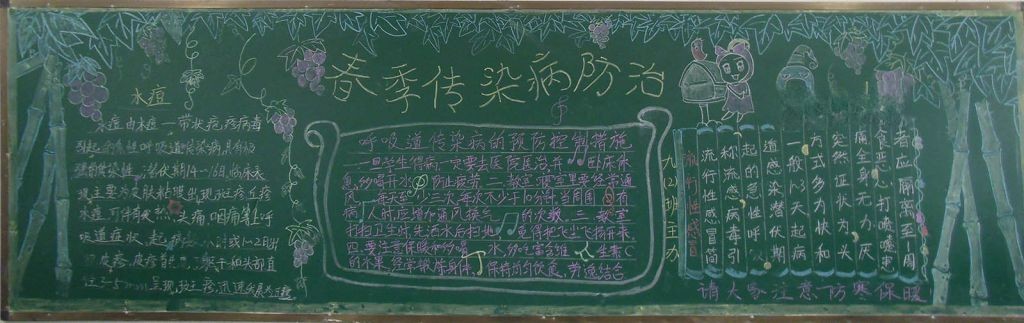 春季传染病防治
水痘
水痘由水痘一带状疱疹病毒
引起的急性呼吸道传染病具有
潜伏期14-16日,临床表
现主要为皮肤粘膜出现
水痘,可伴有发热、头痛、咽痛等上呼
吸道症状,起病 小时或1~2日出
现皮疹,皮疹首 躯干和头部直
径2~5mm
呼吸道传染病的预防控制措施
一旦学生得病一定要去医院医治并 卧床休
息,多喝开水 防止疲劳。二、教室寝室里要经常通
风,每天至少三次每次不少于10分钟,当周围 有
病 人时,应增加通风换气 的次数。三、教室
扫扫卫生时,先洒水后扫地, 免得把灰尘飞扬开来
四、要注意保暖,多喝 水,多吃富含维 生素C
的水果,经常锻炼身体, 保持均匀饮食,劳逸结合
九(2)班主办
流行性感冒
流行性感冒简
称流感病毒引
起的急性呼吸
道感染潜伏期
一般1~3天起病
方式多为状和
突然证状为头
痛全身无力、厌
食恶心打喷嚏患
者应隔离至一周
请大家注意防寒保暖